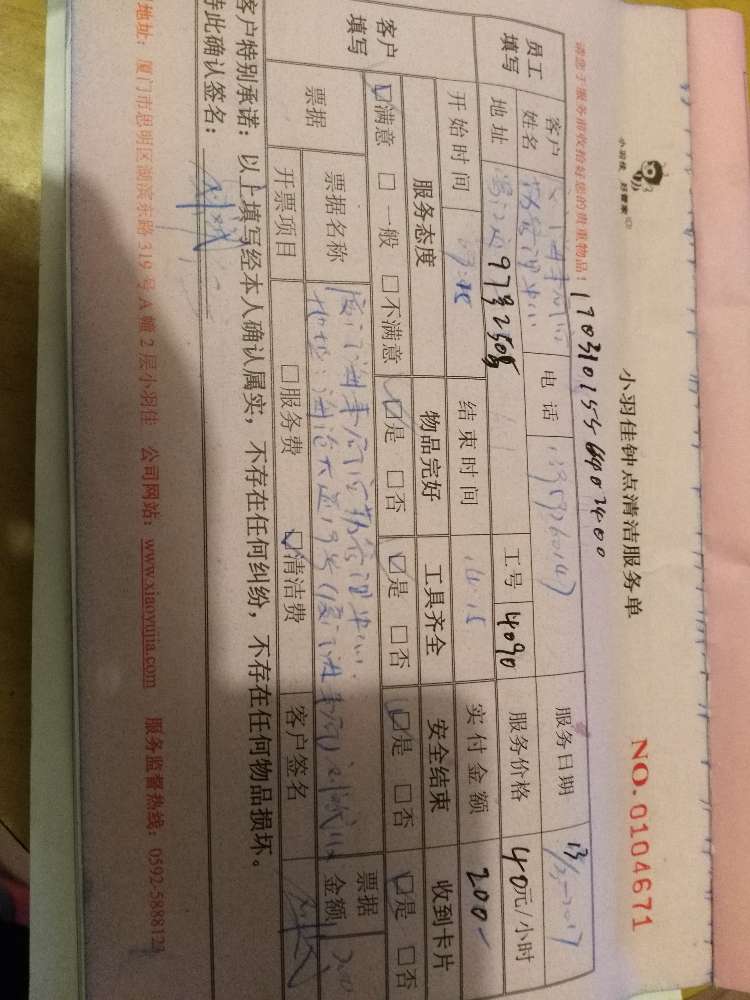 小羽佳 好管家
小羽佳钟点清洁服务单
NO.0104671
请您于服务前收拾好您的贵重物品！
员工填写
客户姓名
电话 13959260147
服务日期 13/3-2017
地址 97号250号
工号 4090
服务价格 40元/小时
开始时间
结束时间 14:15
实付金额 200-
客户填写
服务态度 物品完好 工具齐全 安全结束 收到卡片
☑满意 □一般 □不满意 ☑是 □否 ☑是 □否 ☑是 □否 ☑是 □否
票据 票据名称 厦门海事局后勤管理中心
票据金额
开票项目 □服务费 ☑清洁费 客户签名
客户特别承诺：以上填写经本人确认属实，不存在任何纠纷，不存在任何物品损坏。
特此确认签名：
地址：厦门市思明区湖滨东路319号A幢2层小羽佳 公司网站：www.xiaoyujia.com 服务监督热线：0592-5888123